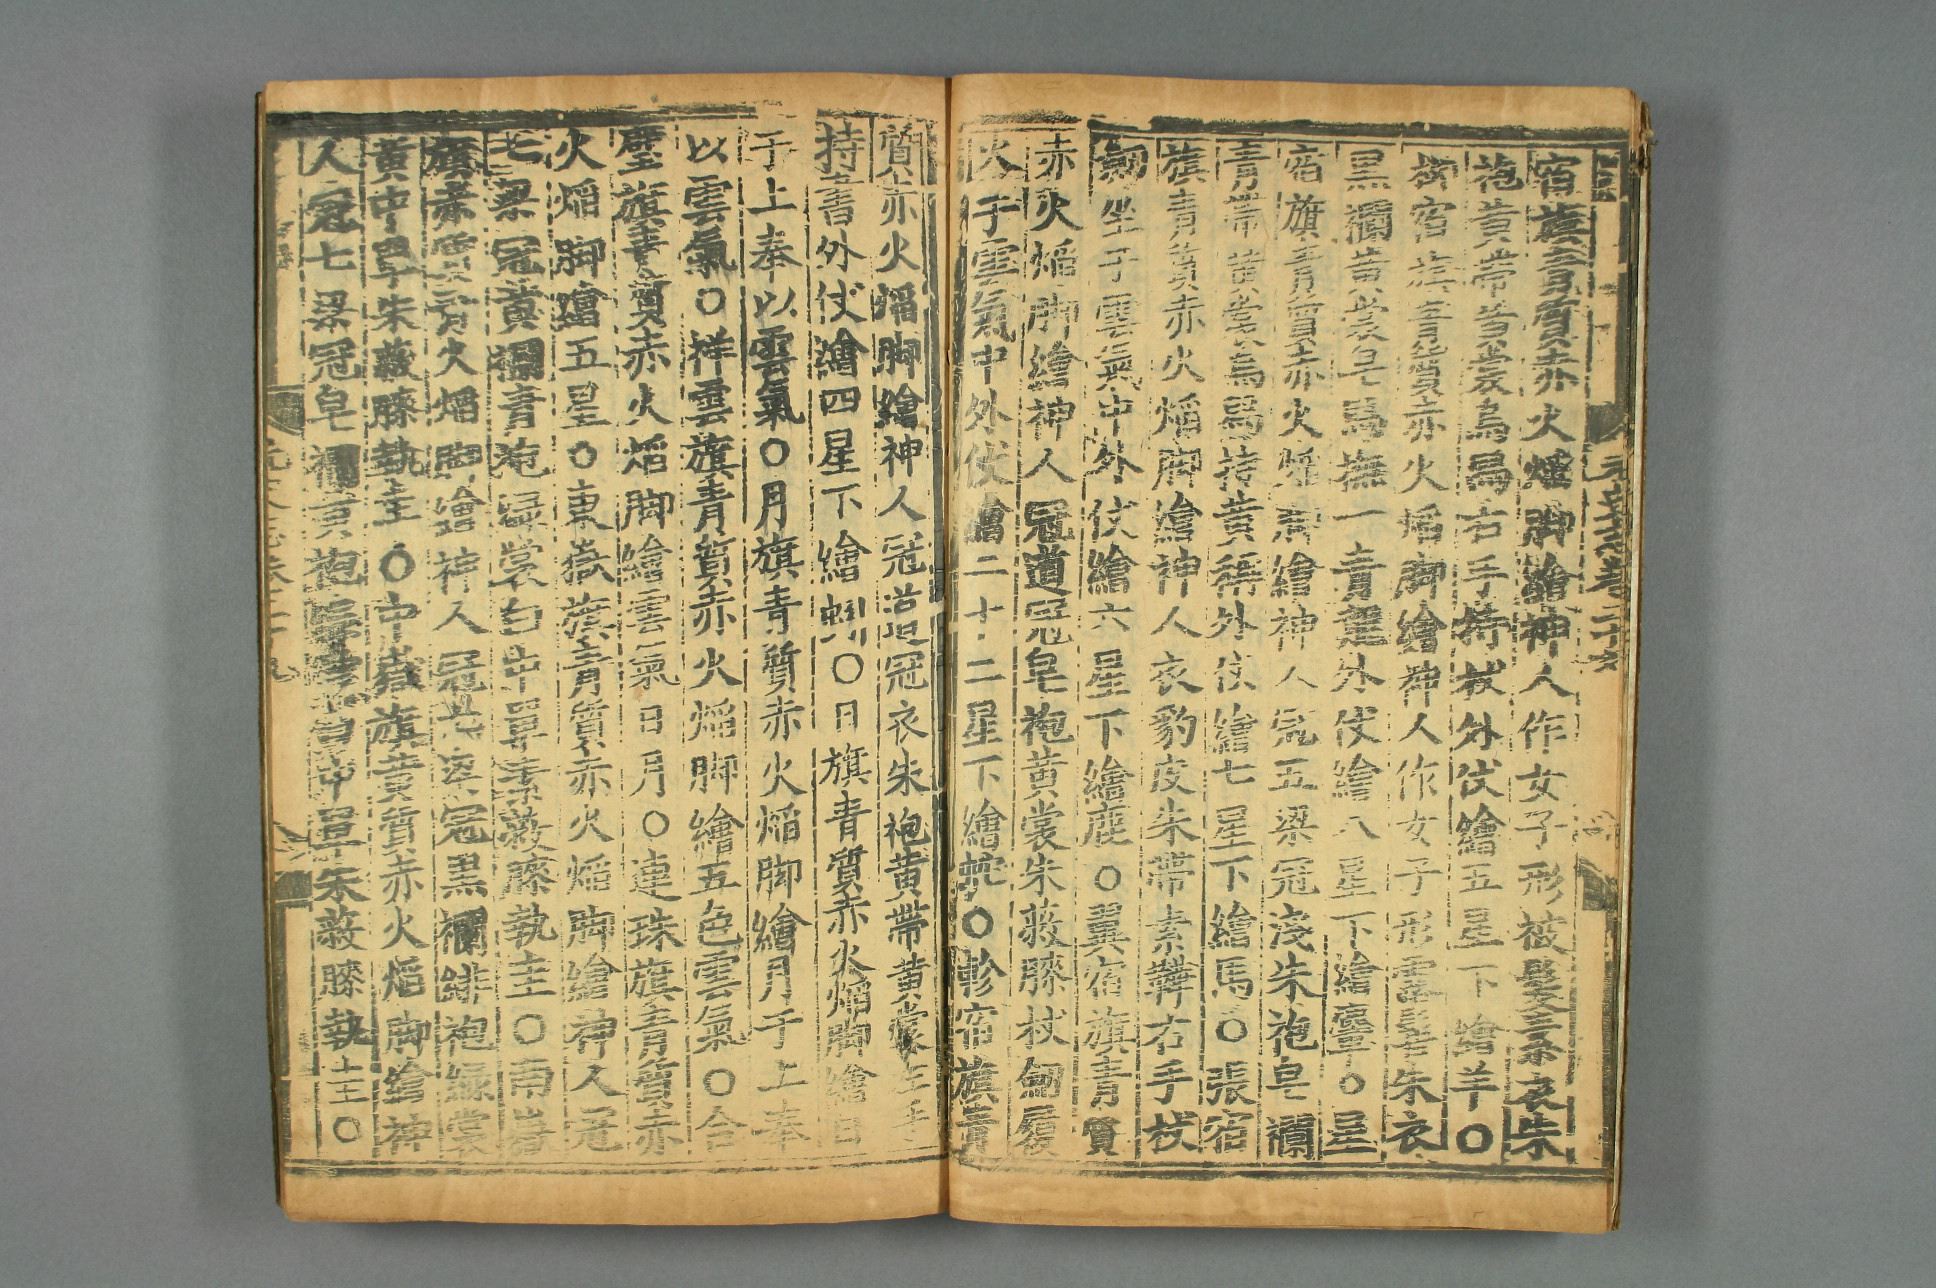 宿旗青質赤火熖脚繪神人作女子形被髮素衣朱
袍黃帶黃裳烏舄右手持杖外仗繪五星下繪羊〇
柳宿旗青質赤火熖脚繪神人作女子形露髻朱衣
黑襴黃裳皂舄撫一青龍外仗繪八星下繪麞〇星
宿旗青質赤火熖脚繪神人冠五梁冠淺朱袍皂襴
青帶黃裳烏舄持黃稱外仗繪七星下繪馬〇張宿
旗青質赤火熖脚繪神人衣豹皮朱帶素鞾右手杖
劒坐于雲氣中外仗繪六星下繪鹿〇翼宿旗青質
赤火熖脚繪神人冠道冠皂袍黃裳朱蔽膝杖劒履
火于雲氣中外仗繪二十二星下繪蛇〇軫宿旗青
質赤火熖脚繪神人冠道冠衣朱袍黃帶黃裳左手
持書外仗繪四星下繪蚓〇日旗青質赤火熖脚繪日
于上奉以雲氣〇月旗青質赤火熖脚繪月于上奉
以雲氣〇祥雲旗青質赤火熖脚繪五色雲氣〇合
璧旗青質赤火熖脚繪雲氣日月〇連珠旗青質赤
火熖脚繪五星〇東嶽旗青質赤火熖脚繪神人冠
七梁冠黃襴青袍綠裳白中單素蔽膝執圭〇南嶽
旗赤質青火熖脚繪神人冠七梁冠黑襴緋袍綠裳
黃中單朱蔽膝執圭〇中嶽旗黃質赤火熖脚繪神
人冠七梁冠皂襴黃袍綠裳白中單朱蔽膝執圭〇